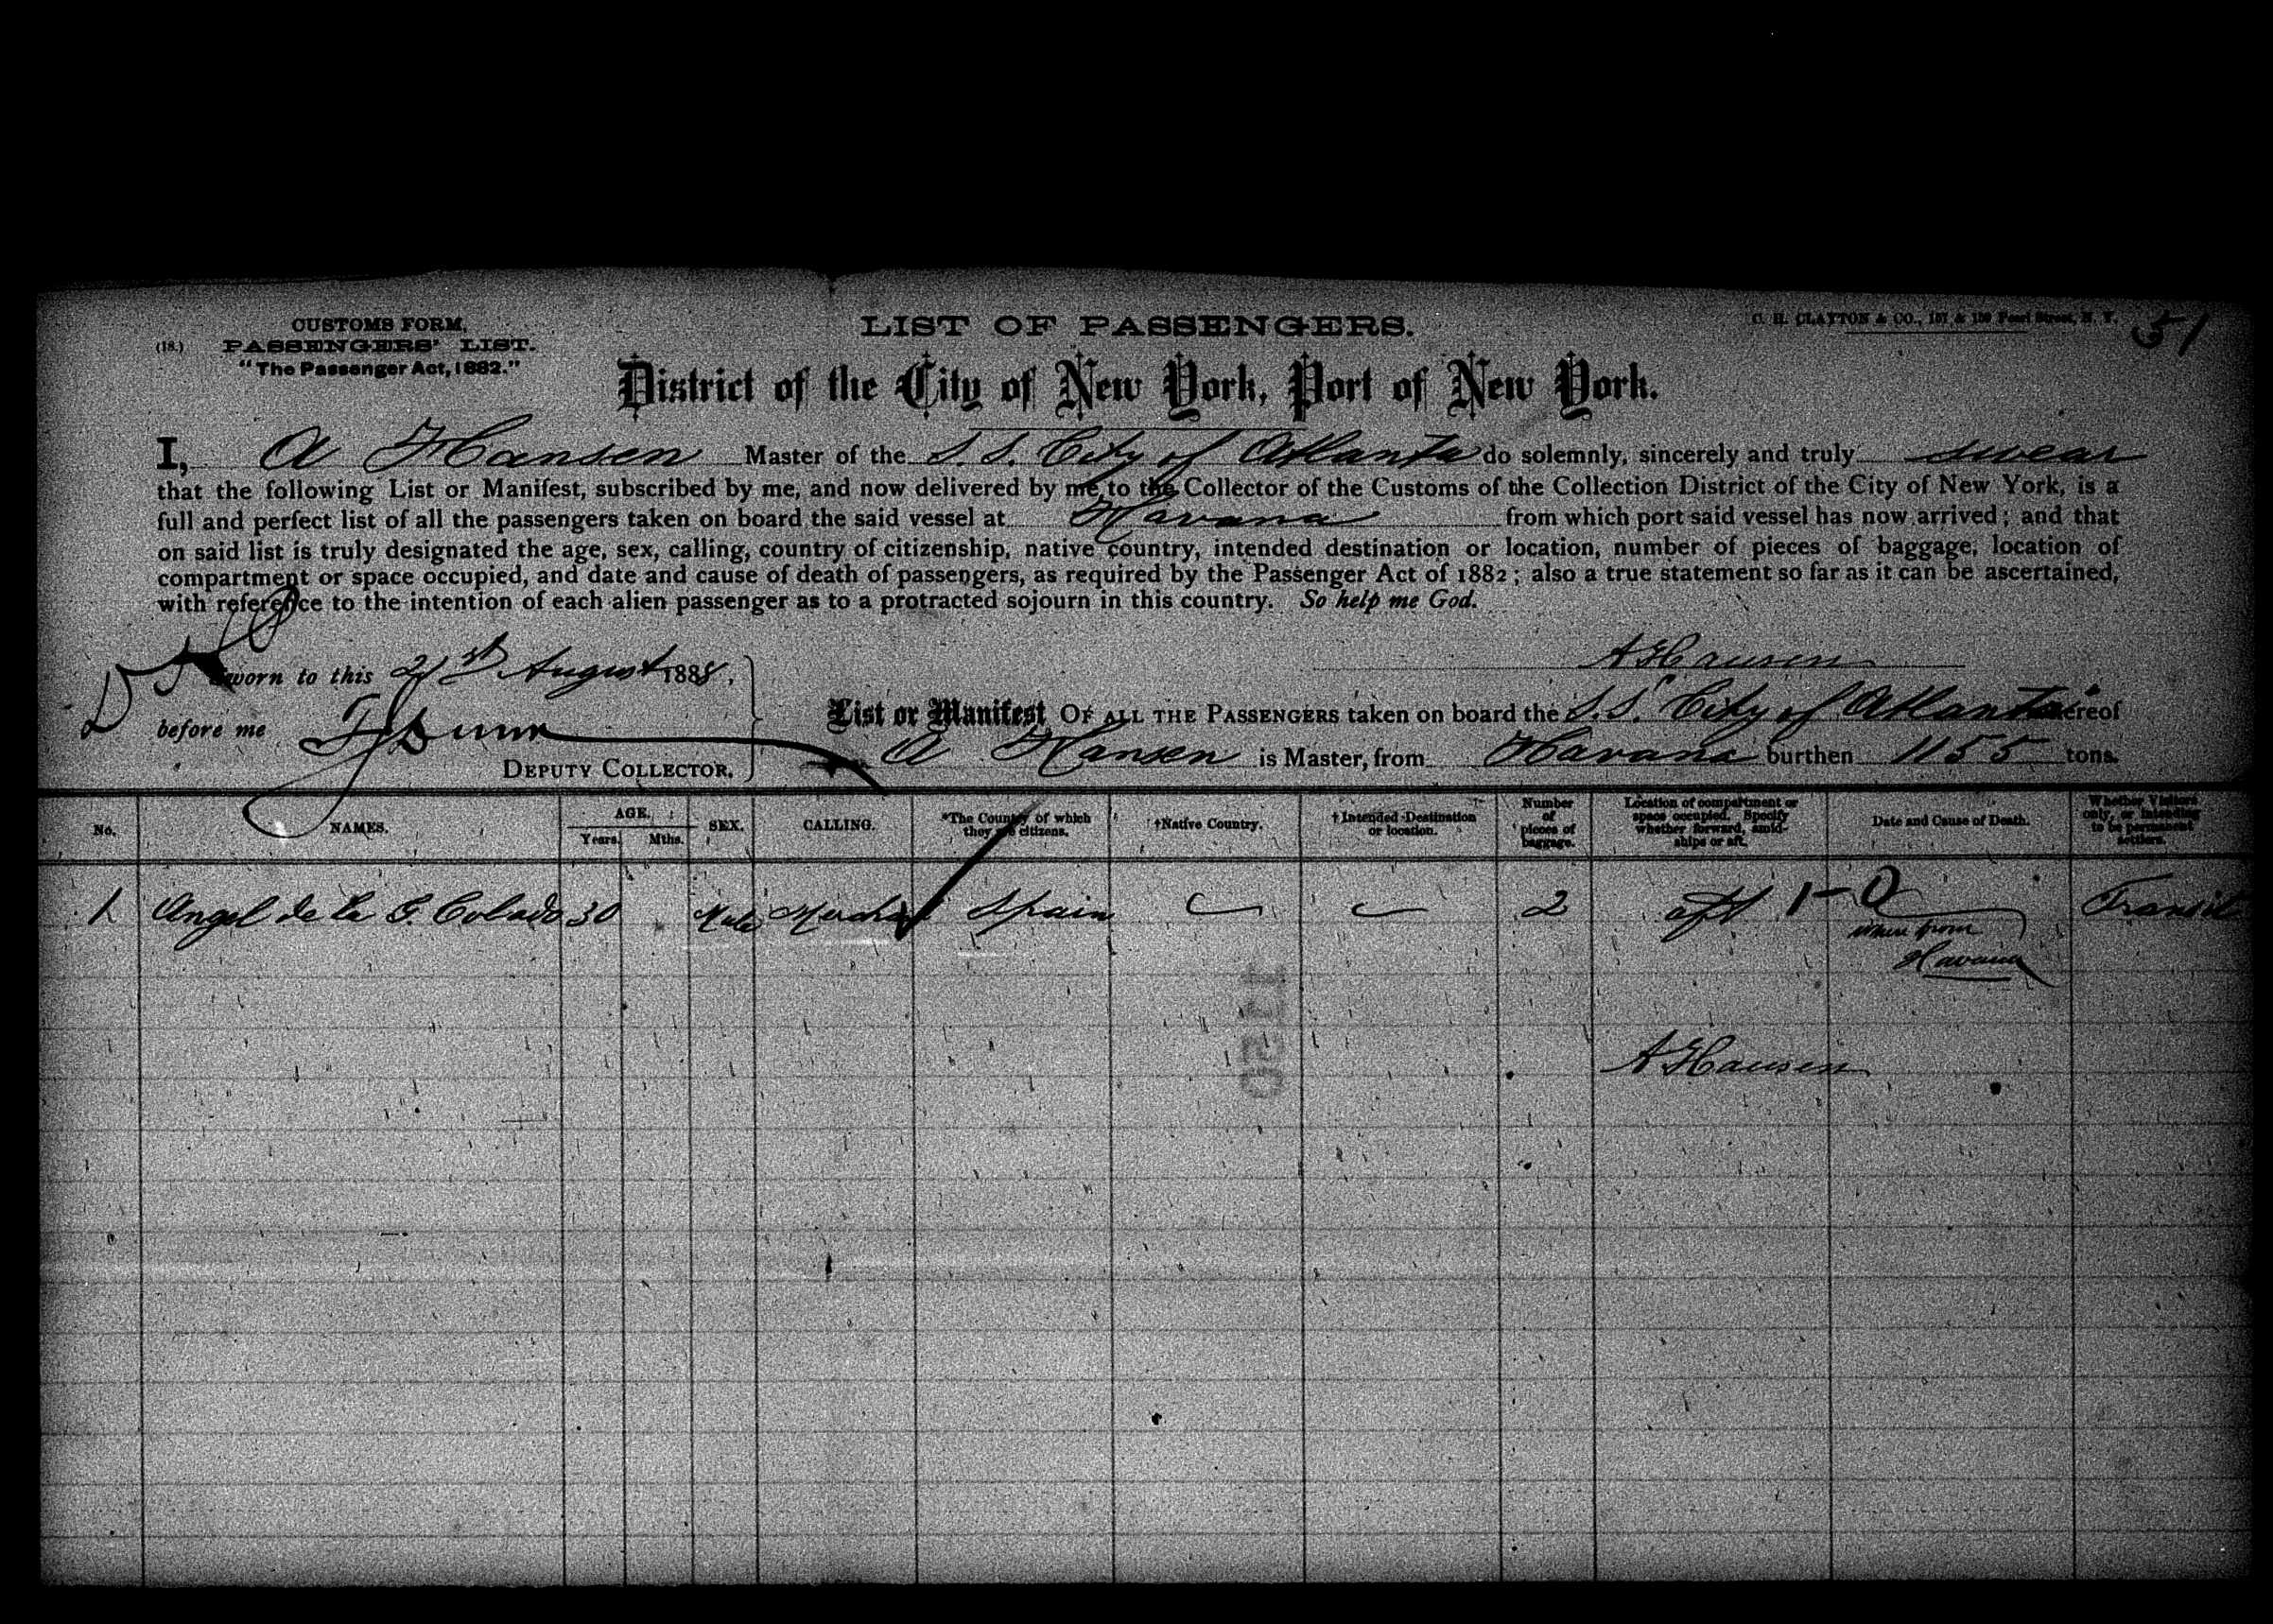 CUSTOMS FORM,
(18.) PASSENGERS' LIST.
"The Passenger Act, 1882."
LIST OF PASSENGERS.
C. H. CLAYTON & CO., 157 & 159 Pearl Street, N. Y.
51
District of the City of New York, Port of New York.
I, A Hansen Master of the S. S. City of Atlanta do solemnly, sincerely and truly swear
that the following List or Manifest, subscribed by me, and now delivered by me to the Collector of the Customs of the Collection District of the City of New York, is a
full and perfect list of all the passengers taken on board the said vessel at Havana from which port said vessel has now arrived; and that
on said list is truly designated the age, sex, calling, country of citizenship, native country, intended destination or location, number of pieces of baggage, location of
compartment or space occupied, and date and cause of death of passengers, as required by the Passenger Act of 1882; also a true statement so far as it can be ascertained,
with reference to the intention of each alien passenger as to a protracted sojourn in this country. So help me God.
Sworn to this 21st August 1888,
A Hansen
before me
DEPUTY COLLECTOR.
List or Manifest OF ALL THE PASSENGERS taken on board the S.S. City of Atlanta whereof
A Hansen is Master, from Havana burthen 1155 tons.
No. NAMES. AGE. Years. Mths. SEX. CALLING. *The Country of which they are citizens. †Native Country. †Intended Destination or location. Number of pieces of baggage. Location of compartment or space occupied. Specify whether forward, amidships or aft. Date and Cause of Death. Whether Visitors only, or intending to be permanent settlers.
1 Angel de la G. Colado 30 Male Merchant Spain 2 aft 1-0 Transit
where from
Havana
A Hansen